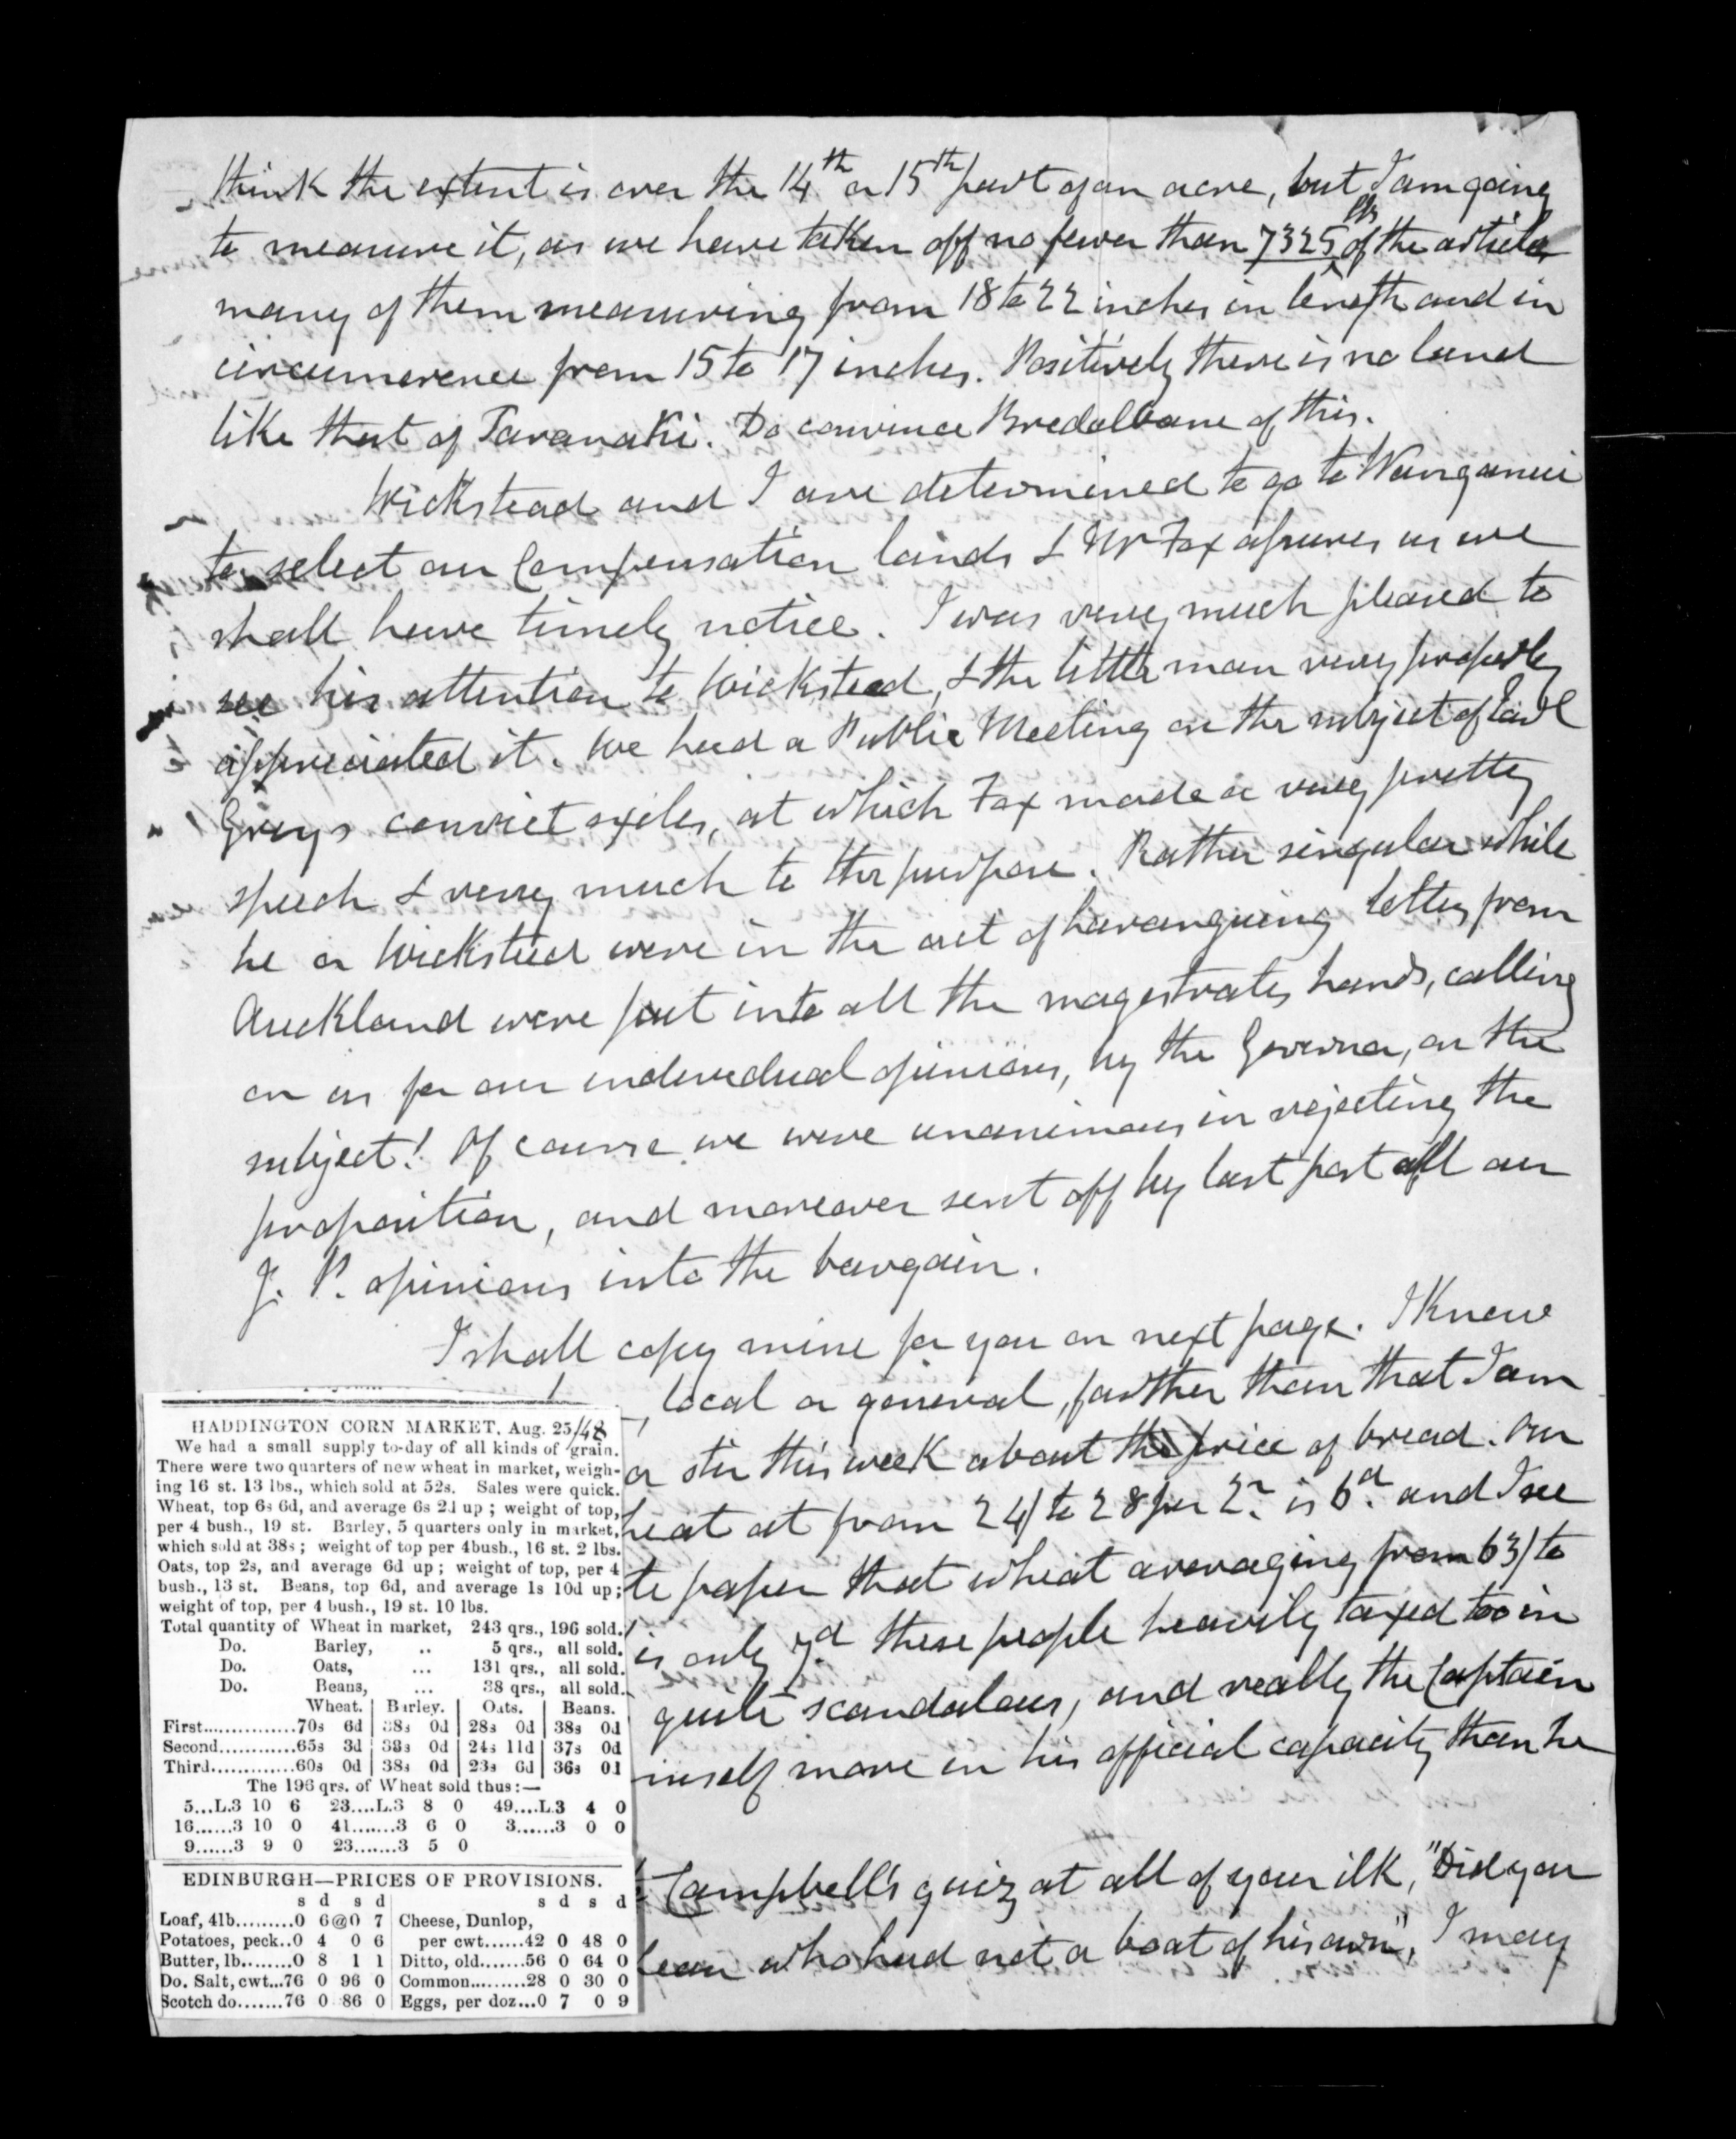 think the extent is over the 14th or 15th part of an acre, but I am going
to measure it, as we have taken off no fewer than 7325 lbs of the article
many of them measuring from 18 to 22 inches in length and in
circumerence from 15 to 17 inches. Positively there is no land
like that of Taranaki. Do convince Bredalbane of this.
Wickstead and I are determined to go to Wanganui
to select our Compensation lands & Mr Fox assures us we
shall have timely notice. I was very much pleased to
see his attention to Wicksteed, & the little man very properly
appreciated it. We had a Public Meeting on the subject of Earl
Greys convict exiles, at which Fox made a very pretty
speech & very much to the purpose. Rather singular while
he or Wicksteed were in the act of haranguing letters from
Auckland were put into all the magestrates hands, calling
on us for our indevedual opinions, by the Governor, on the
subject! Of course we were unanimous in rejecting the
proposition, and moreover sent off by last post all our
J. P. opinions into the bargain.
I shall copy mine for you on next page. I know
, local or general, farther than that I am
a stir this week about the price of bread. Our
heat at from 24/ to 28 per Qr. is 6d. and I see
te paper that wheat averaging from 63/ to
is only 7d these people heavily taxed too in
quite scandalous, and really the Captain
imself more in his official capacity than he
Campbell's quiz at all of your ilk, "Did you
lean who had not a boat of his own", I may
HADDINGTON CORN MARKET, Aug. 25/48
We had a small supply to-day of all kinds of grain.
There were two quarters of new wheat in market, weigh-
ing 16 st. 13 lbs., which sold at 52s. Sales were quick.
Wheat, top 6s 6d, and average 6s 2d up; weight of top,
per 4 bush., 19 st. Barley, 5 quarters only in market,
which sold at 38s; weight of top per 4bush., 16 st. 2 lbs.
Oats, top 2s, and average 6d up; weight of top, per 4
bush., 13 st. Beans, top 6d, and average 1s 10d up;
weight of top, per 4 bush., 19 st. 10 lbs.
Total quantity of Wheat in market, 243 qrs., 196 sold.
Do. Barley, .. 5 qrs., all sold.
Do. Oats, ... 131 qrs., all sold.
Do. Beans, ... 38 qrs., all sold.
Wheat. | Barley. | Oats. | Beans.
First..............70s 6d | 38s 0d | 28s 0d | 38s 0d
Second............65s 3d | 38s 0d | 24s 11d | 37s 0d
Third.............60s 0d | 38s 0d | 23s 6d | 36s 0d
The 196 qrs. of Wheat sold thus:—
5...L.3 10 6 23....L.3 8 0 49....L.3 4 0
16......3 10 0 41.......3 6 0 3......3 0 0
9......3 9 0 23.......3 5 0
EDINBURGH—PRICES OF PROVISIONS.
s d s d s d s d
Loaf, 4lb.........0 6@0 7 | Cheese, Dunlop,
Potatoes, peck..0 4 0 6 | per cwt......42 0 48 0
Butter, lb........0 8 1 1 | Ditto, old.......56 0 64 0
Do. Salt, cwt...76 0 96 0 | Common.........28 0 30 0
Scotch do.......76 0 86 0 | Eggs, per doz...0 7 0 9